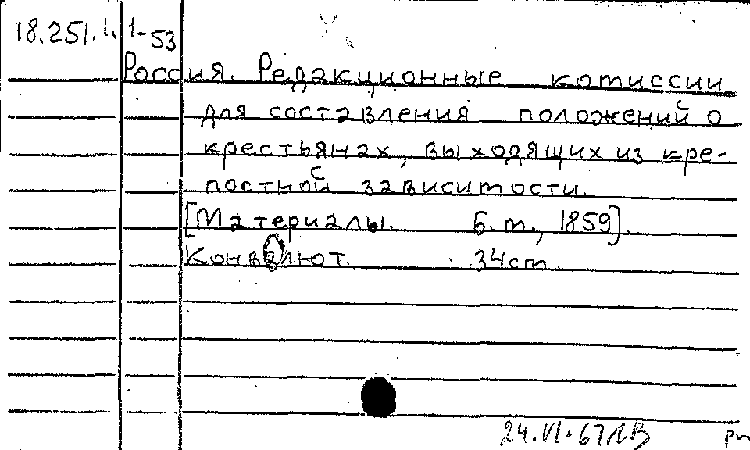 18.251.1. 1-53
Россия. Редакционные комиссии
для составления положений о
крестьянах, выходящих из кре-
постной зависимости.
[Материалы. Б.т., 1859].
Конволют. 34cm
24.VI.67